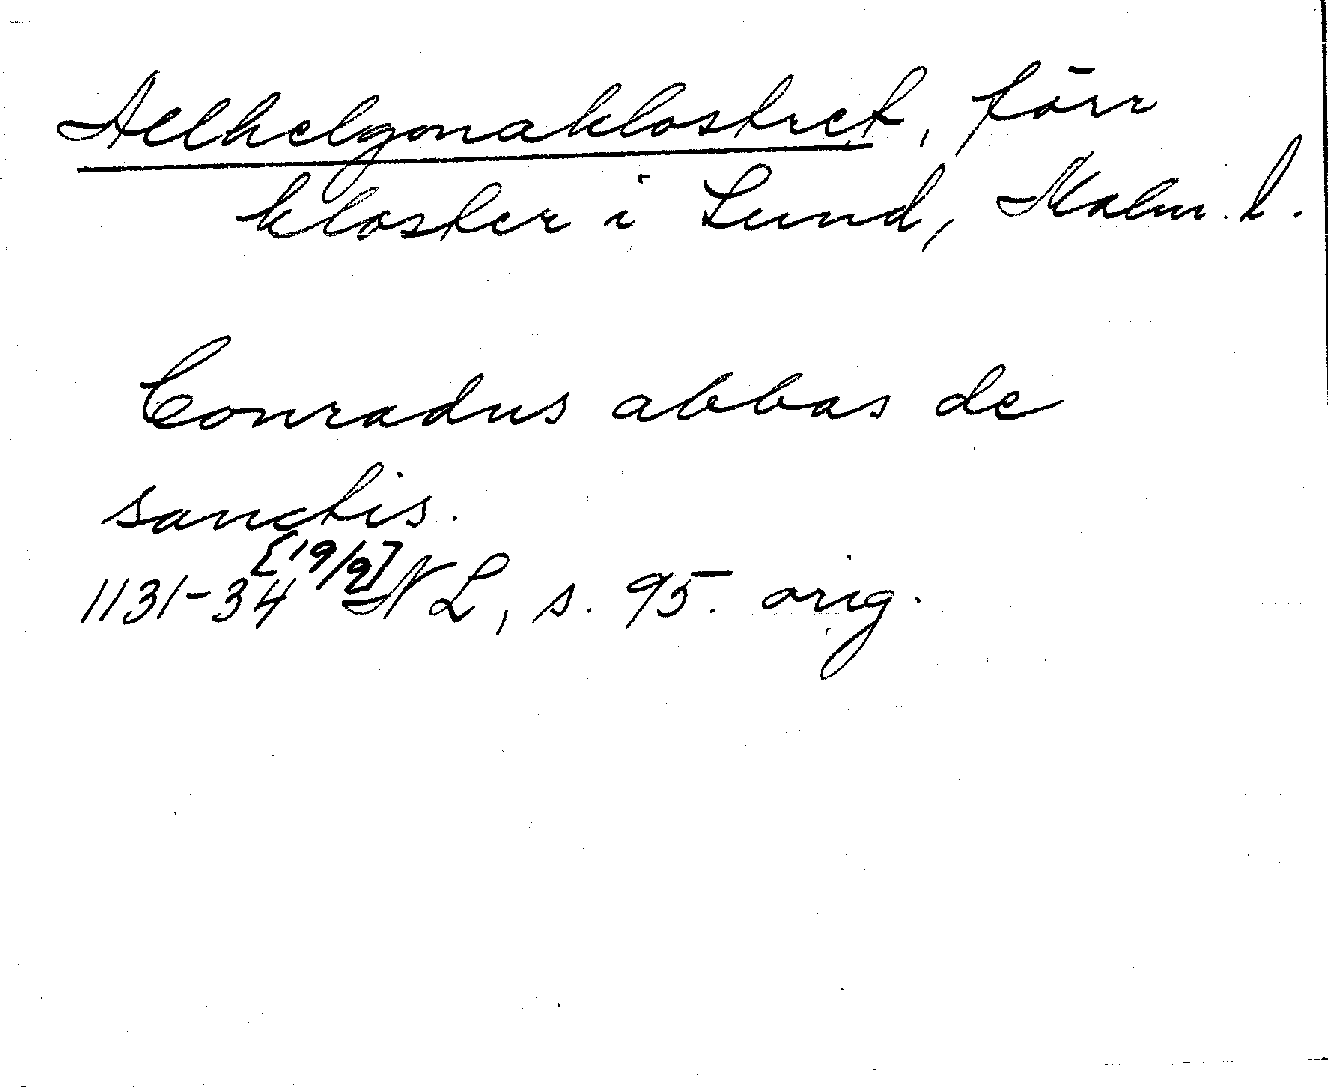 Allhelgonaklostret, förr
kloster i Lund, Malm. l.
Conradus abbas de
sanctis.
[19/9]
1131-34 NL, s. 95. orig.